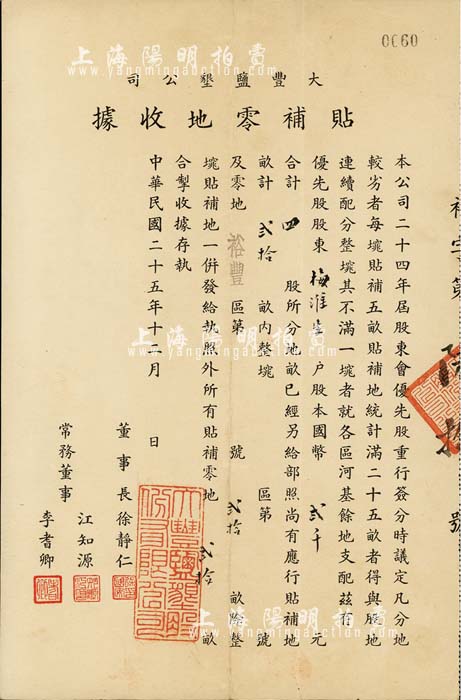 0060
大豐鹽墾公司
貼補零地收據
本公司二十四年屆股東會優先股重行簽分時議定凡分地
較劣者每塊貼補五畝貼補地統計滿二十五畝者得與股地
連續配分整塊其不滿一塊者就各區河基餘地支配茲有
優先股股東 梅淮生 戶股本國幣 貳千 元
合計 四 股所分地畝已經另給部照尚有應行貼補地
畝計 貳拾 畝內整塊 區第 號
及零地 裕豐 區第 號 貳拾 畝除整
塊貼補地一併發給執照外所有貼補零地 貳拾 畝
合掣收據存執
中華民國二十五年十二月 日
董事長 徐靜仁
常務董事 江知源
李耆卿
大豐鹽墾股份有限公司
字第
號
上海陽明拍賣
yangmingauction.com
上海陽明拍賣
yangmingauction.com